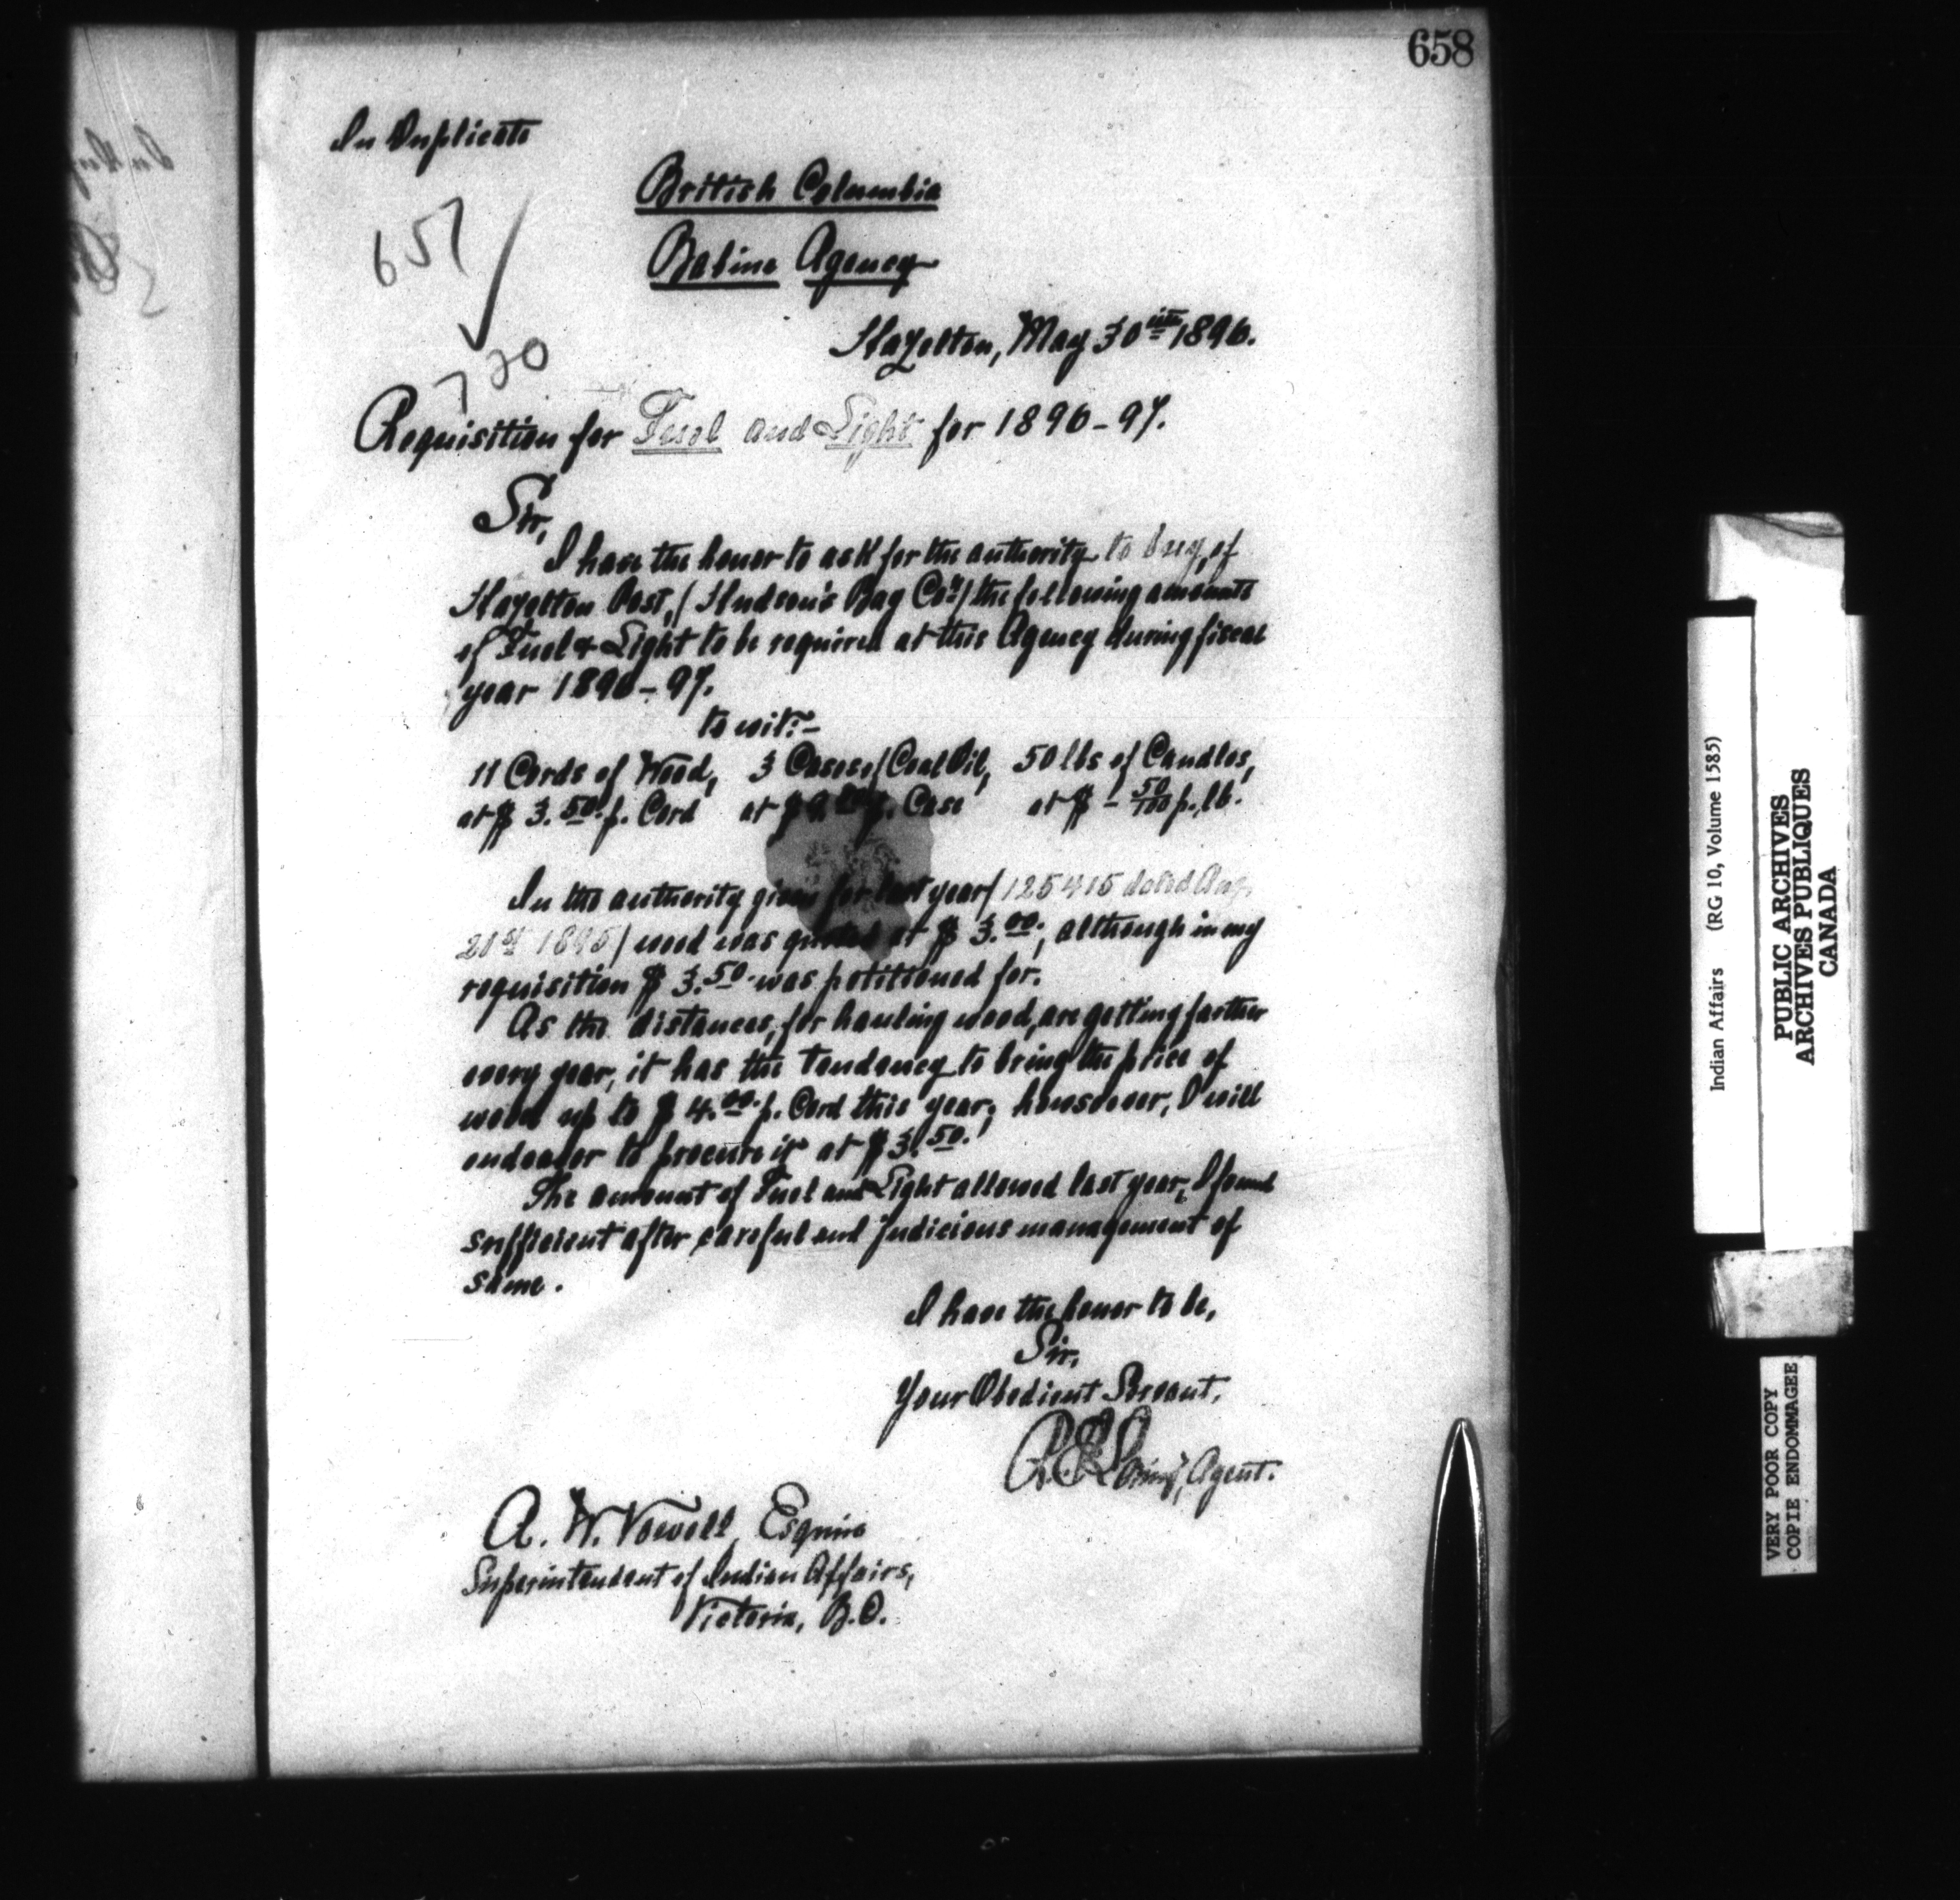 658
In Duplicate
British Columbia
657
Babine Agency
Hazelton, May 30th 1896.
720
Requisition for Fuel and Light for 1896-97.
Sir,
I have the honor to ask for the authority to buy, of
Hazelton Post, (Hudson's Bay Coy) the following amounts
of Fuel & Light to be required at this Agency during fiscal
year 1896-97.
to wit:-
11 Cords of Wood, 3 Cases of Coal Oil, 50 lbs of Candles,
at $ 3.50. p. Cord at $ p. Case at $ - 50/100 p. lb.
In the authority given for last year (125415 dated Aug.
1895) wood was quoted at $ 3.00; although in my
requisition $ 3.50 was petitioned for.
As the distances, for hauling wood, are getting farther
every year, it has the tendency to bring the price of
wood up to $ 4.00. p. Cord this year; howsoever, I will
endeavor to procure it at $ 3.50.
The amount of Fuel and Light allowed last year, I found
sufficient after careful and judicious management of
same.
I have the honor to be,
Sir,
Your Obedient Servant,
R. E. Loring, Agent.
A. W. Vowell, Esquire
Superintendent of Indian Affairs,
Victoria, B.C.
Indian Affairs (RG 10, Volume 1585)
PUBLIC ARCHIVES
ARCHIVES PUBLIQUES
CANADA
VERY POOR COPY
COPIE ENDOMMAGEE